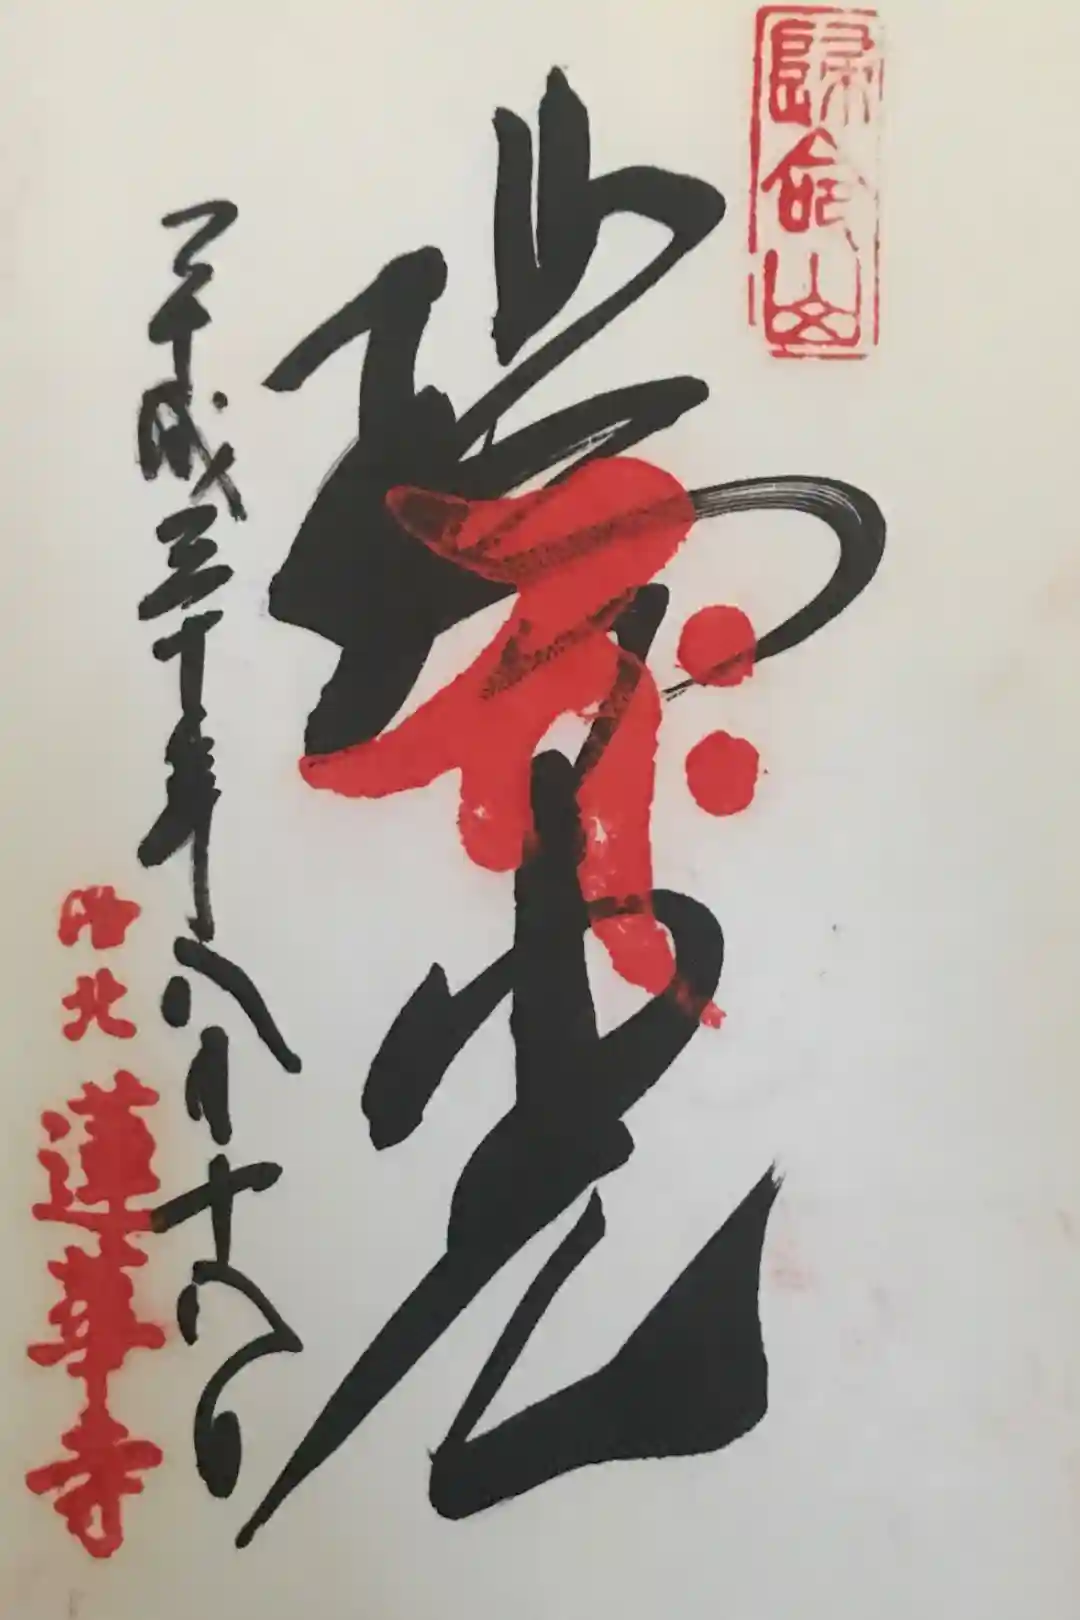 歸命山
瑞光
平成三十年八月十八日
洛北 蓮華寺